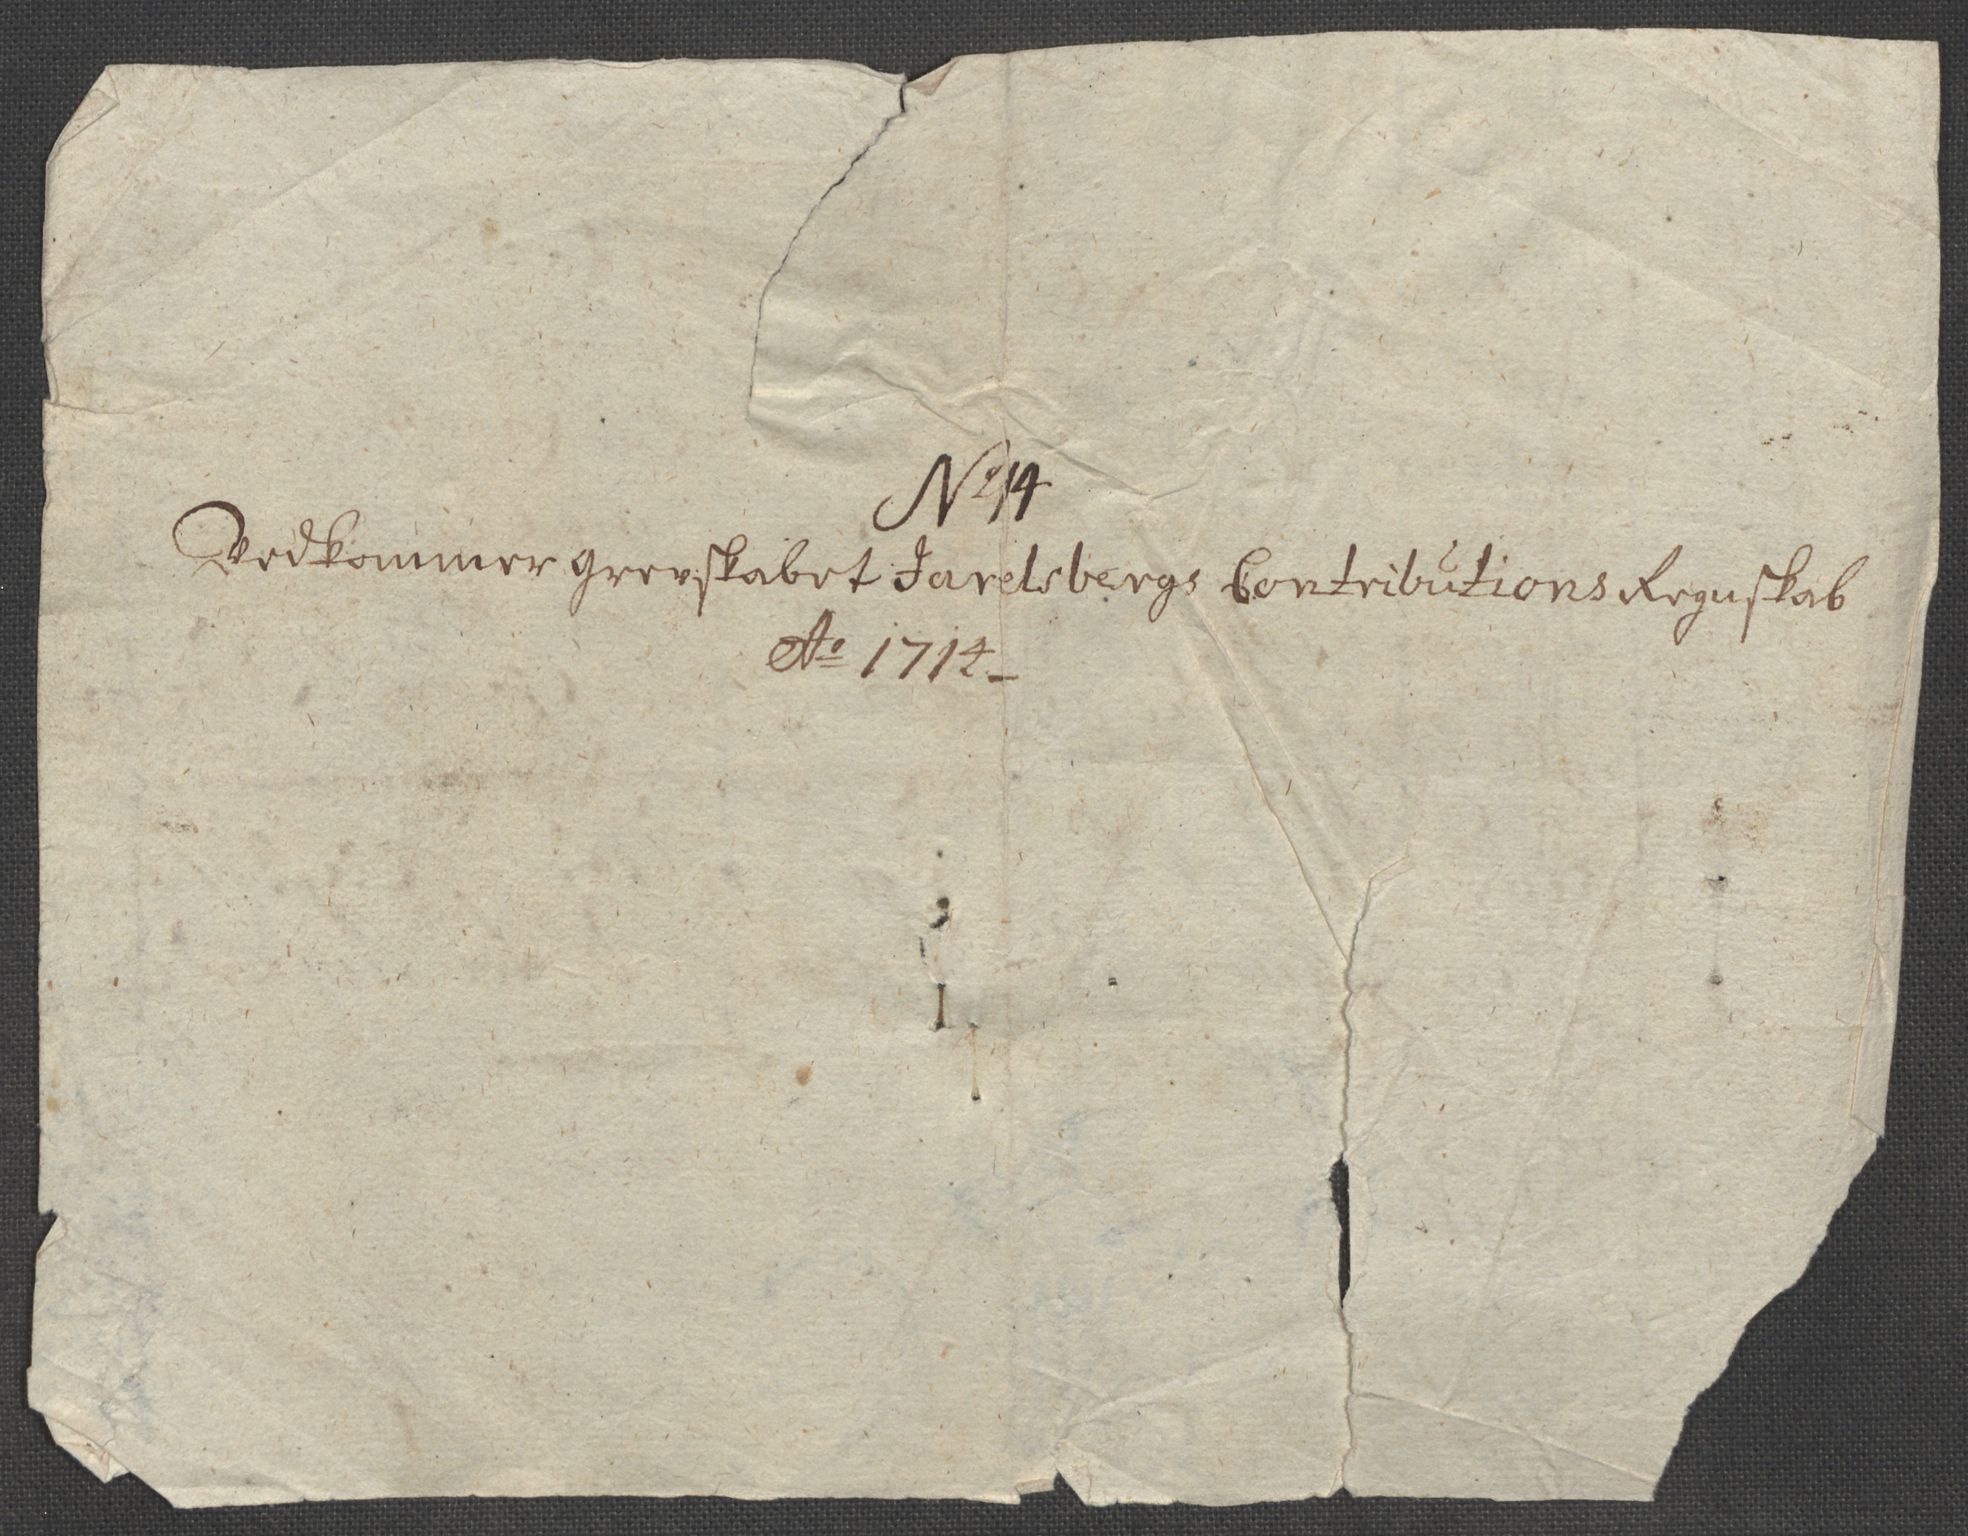 No 14
Vedkommer grevskabet Jarelsbergs Contributions Regnskab
Ao 1714